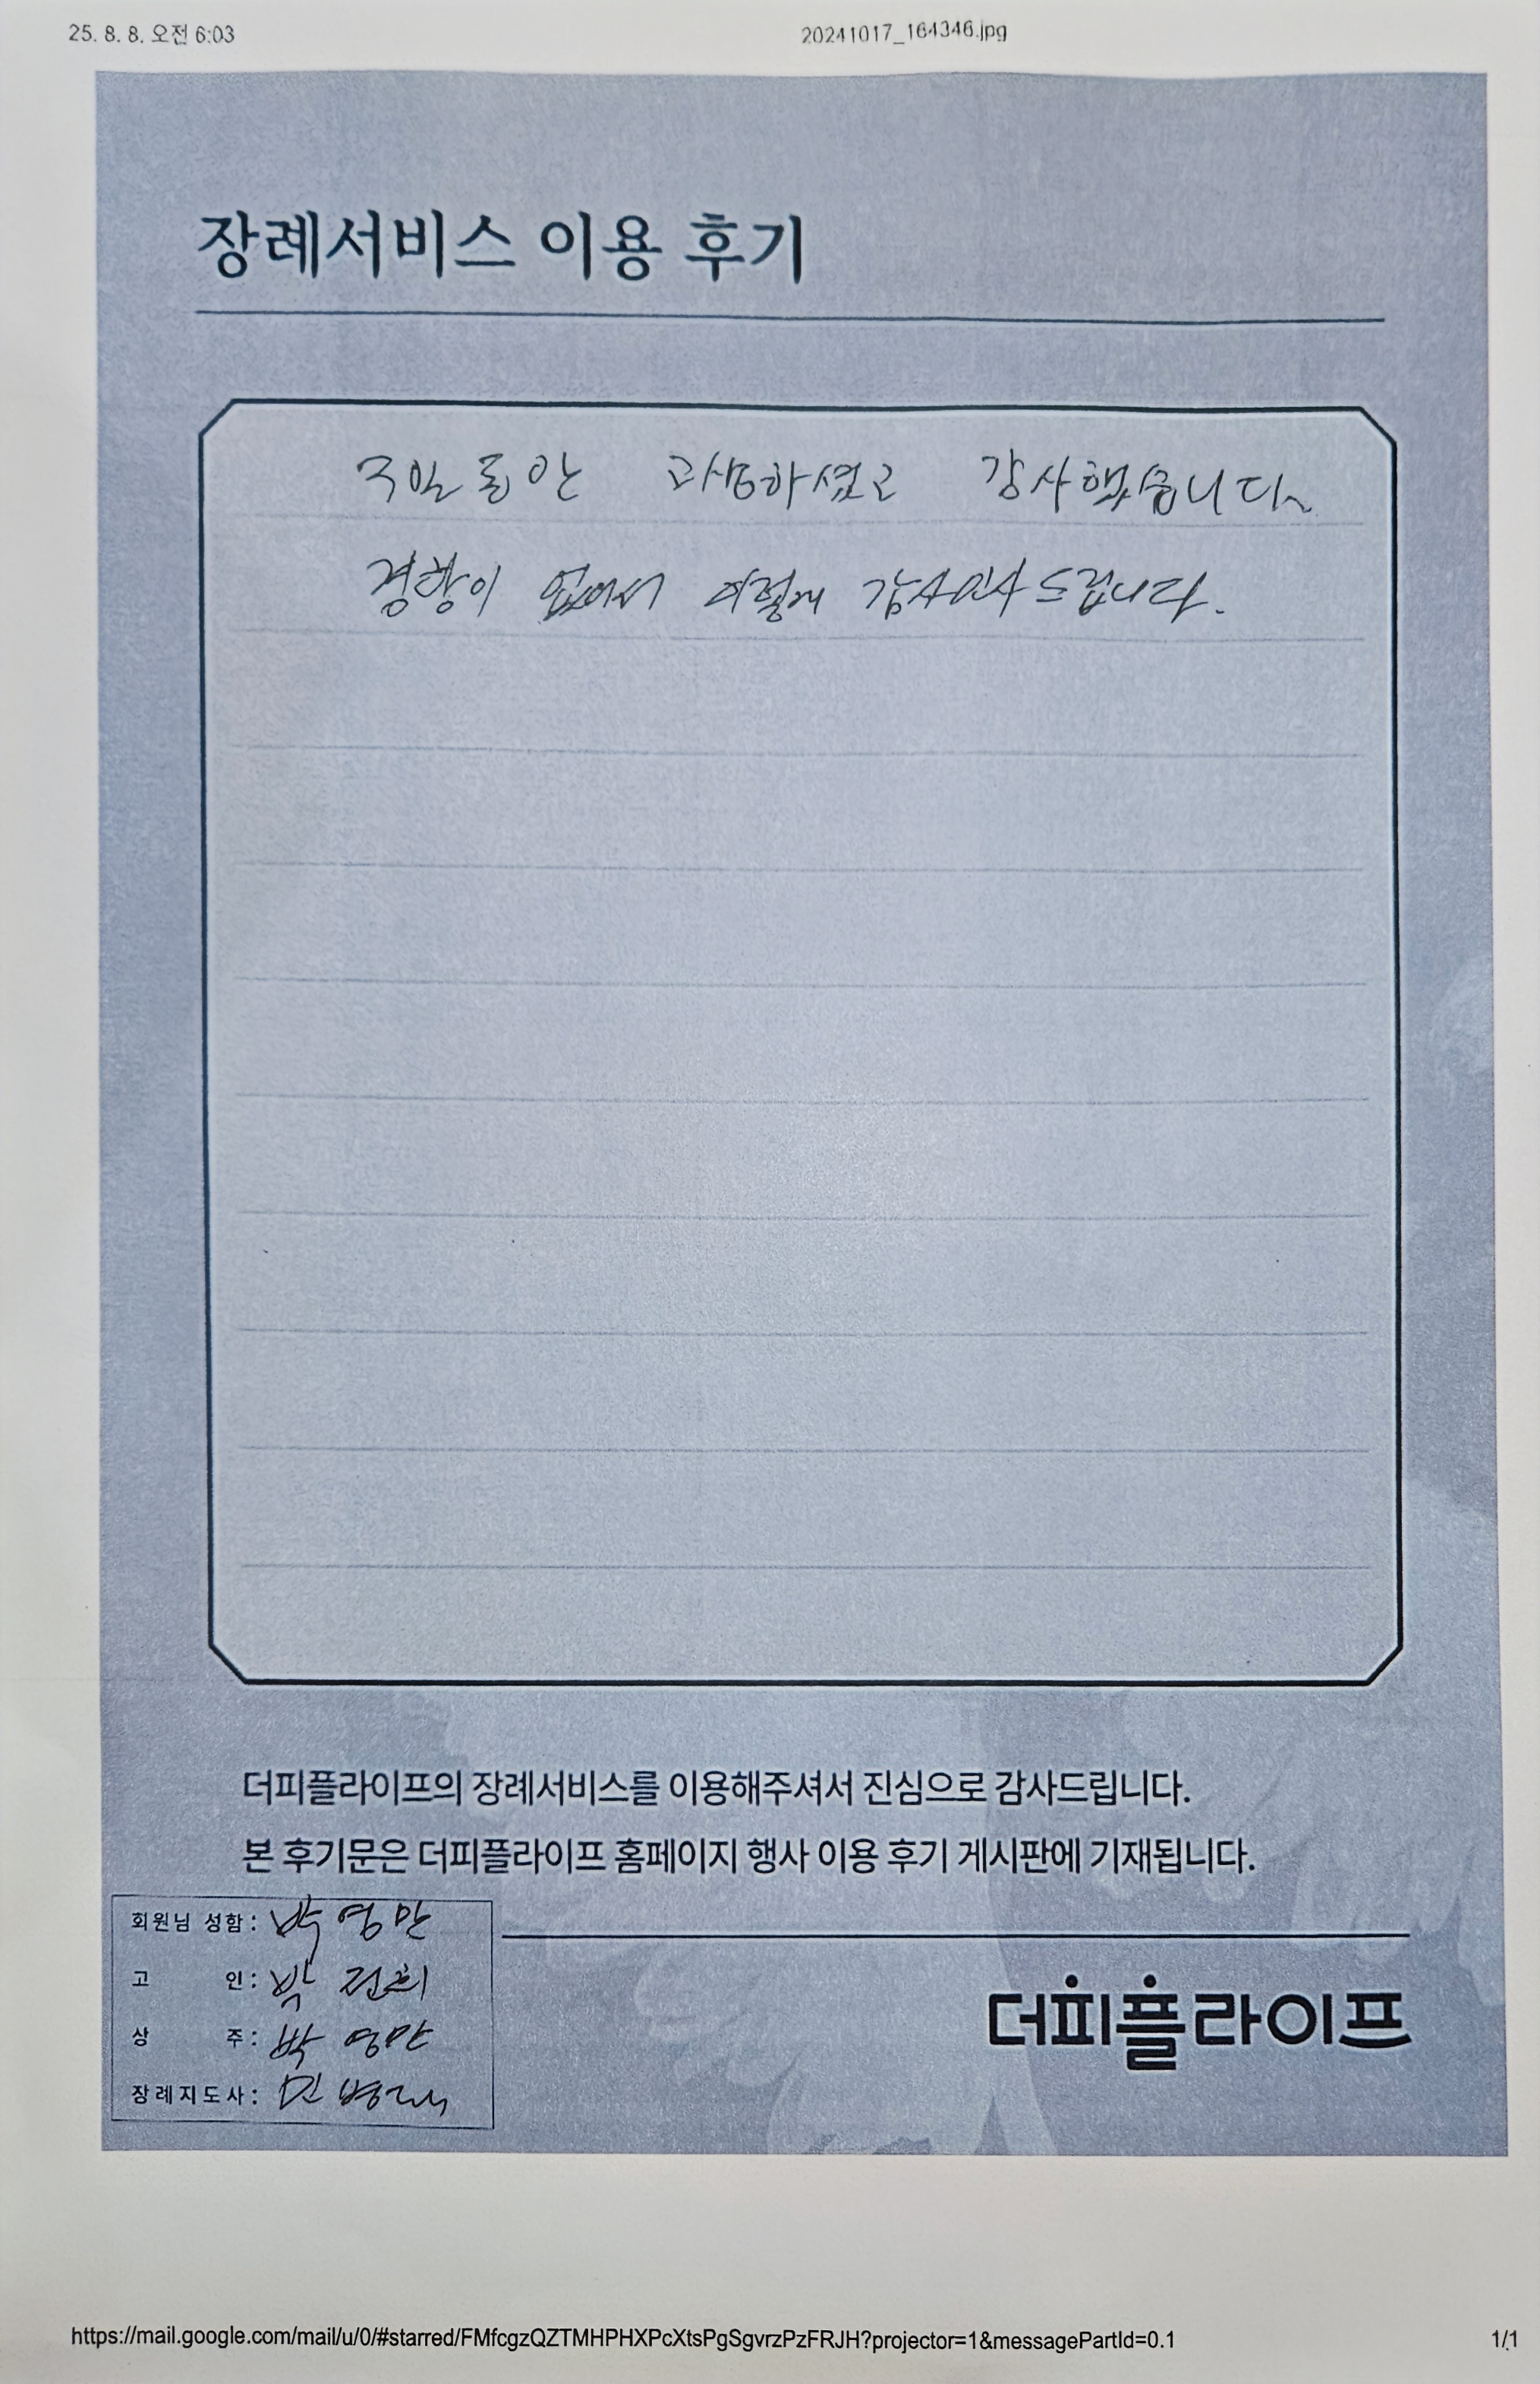 25. 8. 8. 오전 6:03
20241017_164346.jpg
장례서비스 이용 후기
3일동안 고생하셨고 감사했습니다.
경황이 없어서 이렇게 감사인사드립니다.
더피플라이프의 장례서비스를 이용해주셔서 진심으로 감사드립니다.
본 후기문은 더피플라이프 홈페이지 행사 이용 후기 게시판에 기재됩니다.
회원님 성함: 박영만
고 인: 박
상 주: 박영만
장례지도사: 민병
더피플라이프
https://mail.google.com/mail/u/0/#starred/FMfcgzQZTMHPHXPcXtsPgSgvrzPzFRJH?projector=1&messagePartId=0.1
1/1